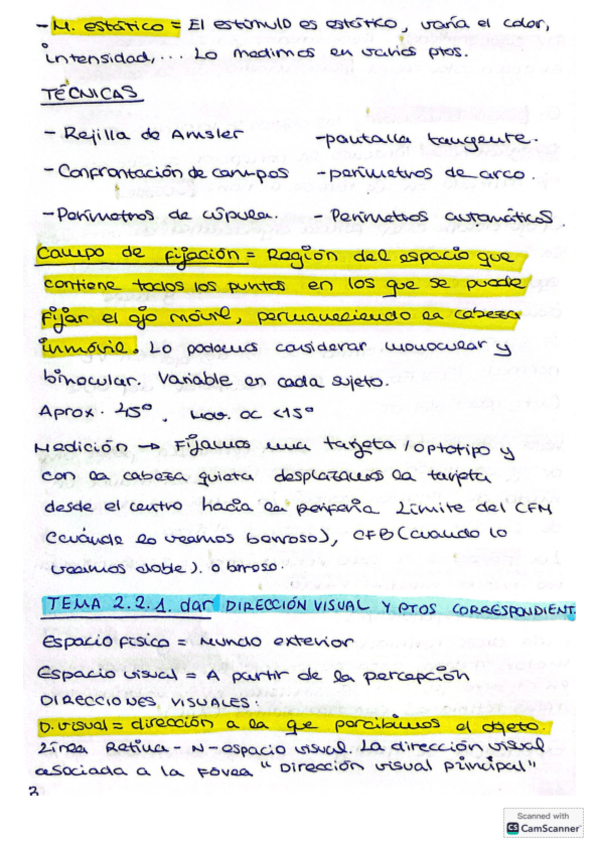 - M. estático = El estímulo es estático, varía el color,
intensidad,... Lo medimos en varios ptos.
TÉCNICAS
- Rejilla de Amsler - pantalla tangente.
- Confrontación de campos - perímetros de arco.
- Perímetros de cúpula. - Perímetros automáticos.
Campo de fijación = Región del espacio que
contiene todos los puntos en los que se puede
Fijar el ojo móvil, permaneciendo la cabeza
inmóvil. Lo podemos considerar monocular y
binocular. Variable en cada sujeto.
Aprox. 45º, mov. oc <15º
Medición → Fijamos una tarjeta/optotipo y
con la cabeza quieta desplazamos la tarjeta
desde el centro hacia la periferia Límite del CFM
(cuándo lo vemos borroso), CFB (cuando lo
veamos doble). o brroso.
TEMA 2.2.1. dar DIRECCIÓN VISUAL Y PTOS CORRESPONDIENT.
Espacio físico = Mundo exterior
Espacio visual = A partir de la percepción
DIRECCIONES VISUALES:
D. visual = dirección a la que percibimos el objeto.
Línea Retina - N - espacio visual. La dirección visual
asociada a la Fóvea "Dirección visual principal"
Scanned with
CS CamScanner